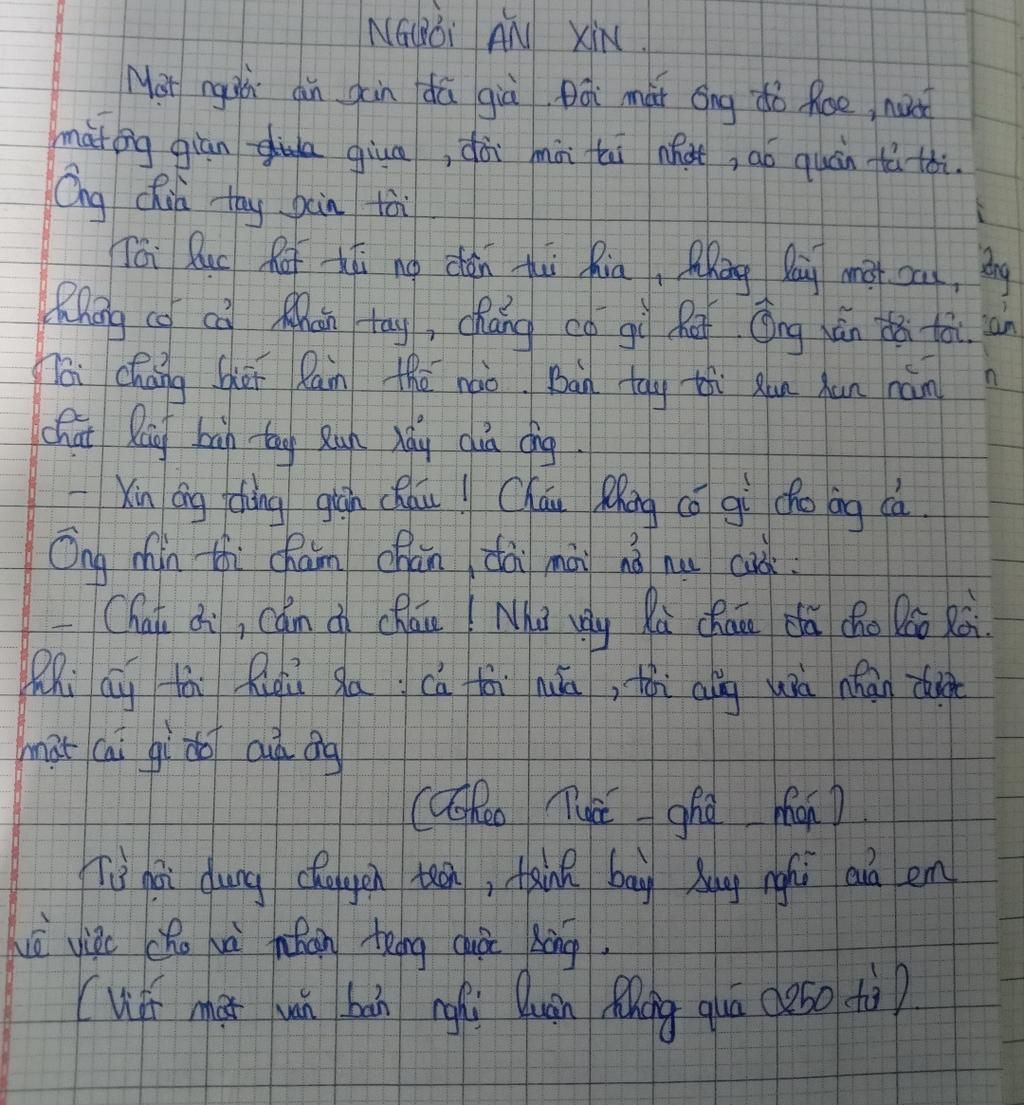 NGƯỜI ĂN XIN.
Một người ăn xin đã già. Đôi mắt ông đỏ hoe, nước
mắt ông giàn giụa, đôi môi tái nhợt, áo quần tả tơi.
Ông chìa tay xin tôi
Tôi lục hết túi nọ đến túi kia, không lấy một xu,
không có cả khăn tay, chẳng có gì hết. Ông vẫn đợi tôi.
Tôi chẳng biết làm thế nào. Bàn tay tôi run run nắm
chặt lấy bàn tay run rẩy của ông.
- Xin ông đừng giận cháu! Cháu không có gì cho ông cả.
Ông nhìn tôi chăm chăm, đôi môi nở nụ cười.
- Cháu ơi, cảm ơn cháu! Như vậy là cháu đã cho lão rồi.
Khi ấy tôi hiểu ra: cả tôi nữa, tôi cũng vừa nhận được
một cái gì đó của ông
(Theo Tuốc - ghê - nhép).
Từ nội dung chuyện trên, trình bày suy nghĩ của em
về việc cho và nhận trong cuộc sống.
(Viết một văn bản nghị luận không quá 0250 từ).